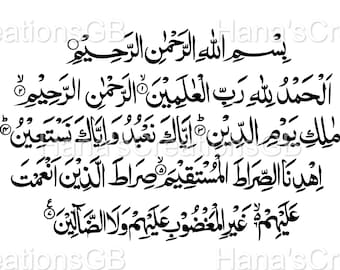 بِسْمِ اللهِ الرَّحْمٰنِ الرَّحِيْمِ
اَلْحَمْدُ لِلّٰهِ رَبِّ الْعٰلَمِيْنَ ۱ الرَّحْمٰنِ الرَّحِيْمِ ۲
مٰلِكِ يَوْمِ الدِّيْنِ ۳ اِيَّاكَ نَعْبُدُ وَاِيَّاكَ نَسْتَعِيْنُ ۴
اِهْدِنَا الصِّرَاطَ الْمُسْتَقِيْمَ ۵ صِرَاطَ الَّذِيْنَ اَنْعَمْتَ
عَلَيْهِمْ ۶ غَيْرِ الْمَغْضُوْبِ عَلَيْهِمْ وَلَا الضَّآلِّيْنَ ۷
Hana'sCreationsGB